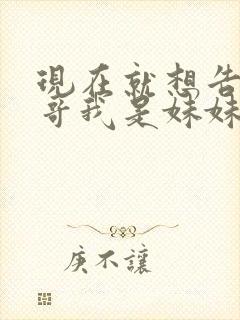 現在就想告
哥我是妹妹
庚不讓